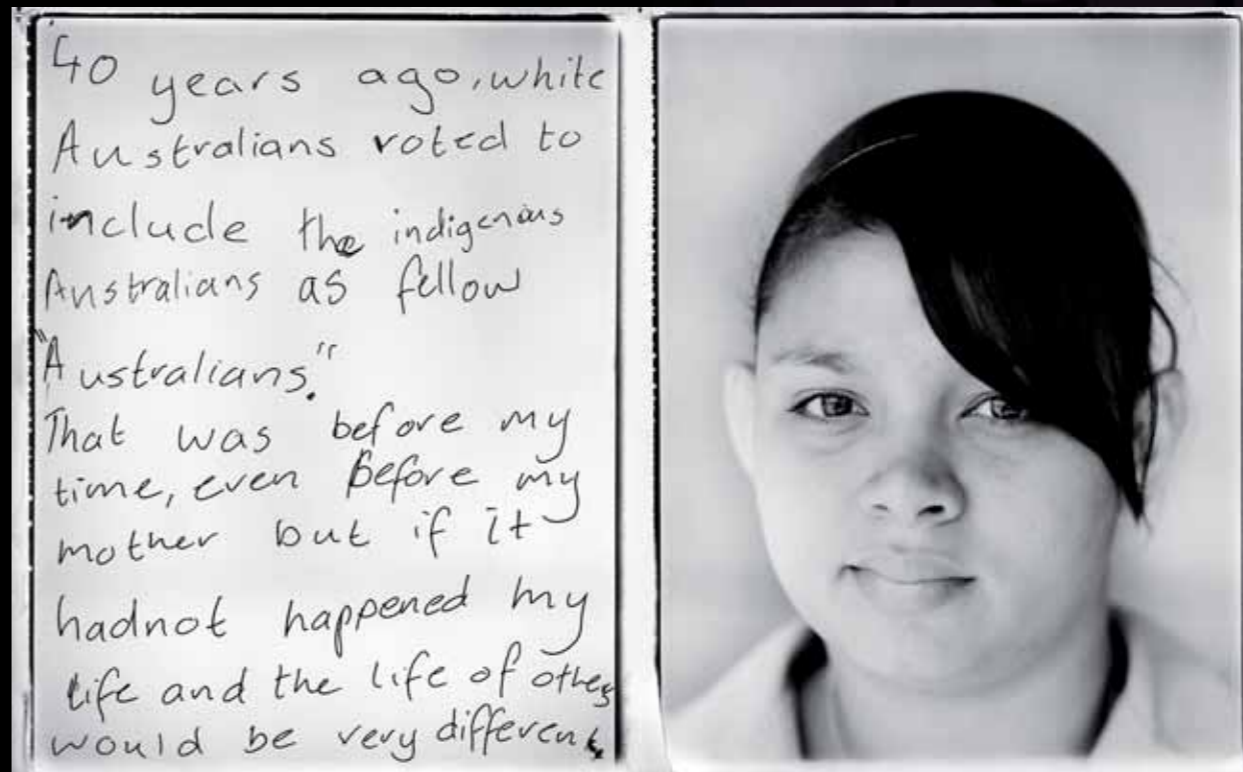 '40 years ago, white
Australians voted to
include the indigenous
Australians as fellow
"Australians."
That was before my
time, even before my
mother but if it
hadnot happened my
life and the life of others
would be very different